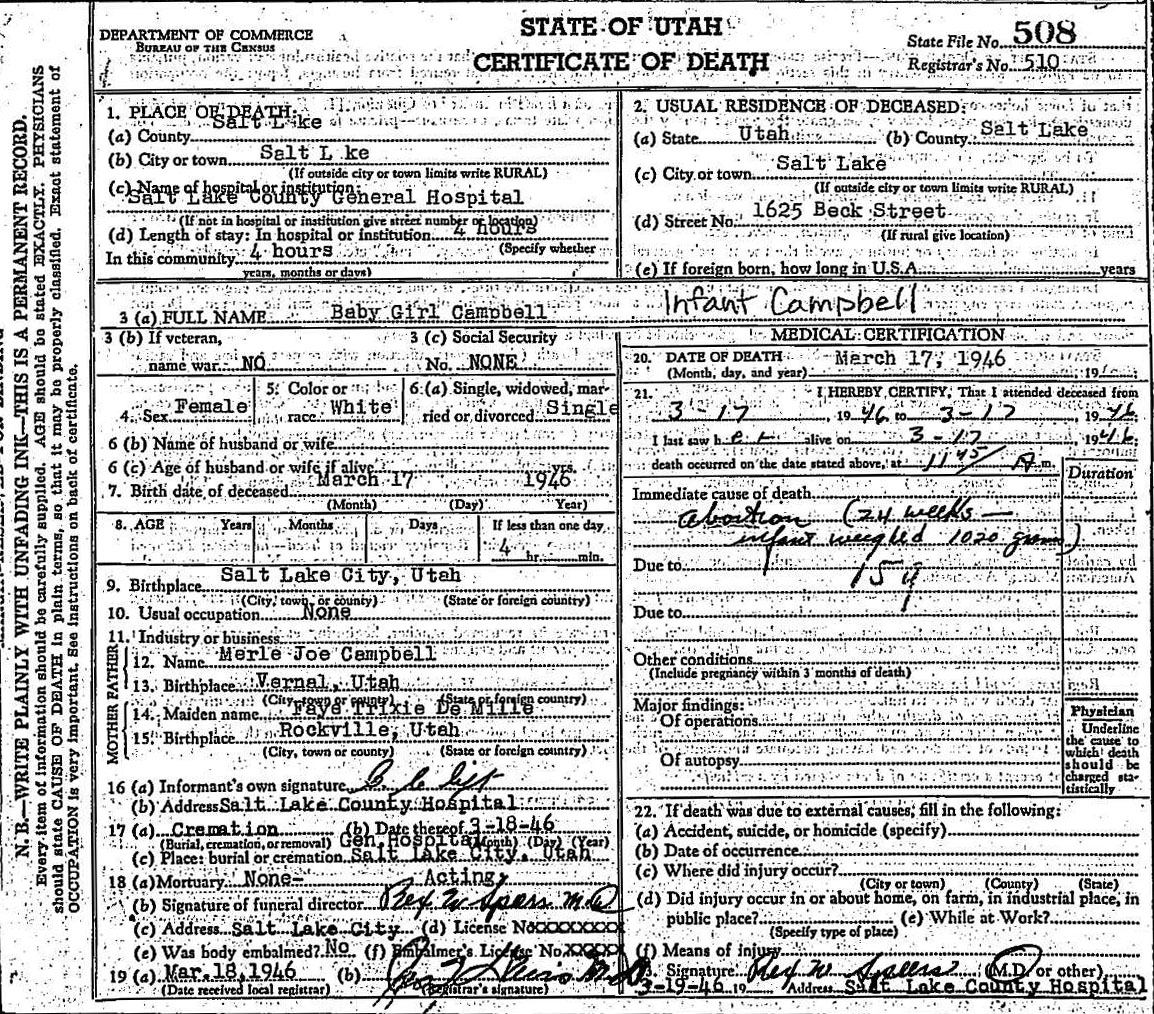 STATE OF UTAH
CERTIFICATE OF DEATH
DEPARTMENT OF COMMERCE
BUREAU OF THE CENSUS
State File No. 508
Registrar's No. 510
N. B.—WRITE PLAINLY WITH UNFADING INK—THIS IS A PERMANENT RECORD.
Every item of information should be carefully supplied. AGE should be stated EXACTLY. PHYSICIANS
should state CAUSE OF DEATH in plain terms, so that it may be properly classified. Exact statement of
OCCUPATION is very important. See instructions on back of certificate.
1. PLACE OF DEATH:
(a) County Salt Lake
(b) City or town Salt L ke
(If outside city or town limits write RURAL)
(c) Name of hospital or institution:
Salt Lake County General Hospital
(If not in hospital or institution give street number or location)
(d) Length of stay: In hospital or institution 4 hours
(Specify whether
In this community 4 hours
years, months or days)
2. USUAL RESIDENCE OF DECEASED:
(a) State Utah (b) County Salt Lake
(c) City or town Salt Lake
(If outside city or town limits write RURAL)
(d) Street No. 1625 Beck Street
(If rural give location)
(e) If foreign born, how long in U.S.A. years
3 (a) FULL NAME Baby Girl Campbell Infant Campbell
3 (b) If veteran, 3 (c) Social Security
name war NO No. NONE
4. Sex Female 5. Color or race White 6. (a) Single, widowed, married or divorced Single
6 (b) Name of husband or wife
6 (c) Age of husband or wife if alive yrs.
7. Birth date of deceased March 17 1946
(Month) (Day) Year)
8. AGE Years Months Days If less than one day
4 hr. min.
9. Birthplace Salt Lake City, Utah
(City, town, or county) (State or foreign country)
10. Usual occupation None
11. Industry or business
FATHER
12. Name Merle Joe Campbell
13. Birthplace Vernal, Utah
(City, town or county) (State or foreign country)
MOTHER
14. Maiden name Faye Trixie De Mille
15. Birthplace Rockville, Utah
(City, town or county) (State or foreign country)
16 (a) Informant's own signature
(b) Address Salt Lake County Hospital
17 (a) Cremation (b) Date thereof 3-18-46
(Burial, cremation, or removal) (Month) (Day) (Year)
Gen. Hospital
(c) Place: burial or cremation Salt Lake City, Utah
18 (a) Mortuary None- Acting,
(b) Signature of funeral director Rex W Spears M.D
(c) Address Salt Lake City (d) License No XXXXXXXX
(e) Was body embalmed? No (f) Embalmer's License No. XXXXX
19 (a) Mar. 18, 1946 (b)
(Date received local registrar) (Registrar's signature)
MEDICAL CERTIFICATION
20. DATE OF DEATH March 17, 1946
(Month, day, and year) 19
21. I HEREBY CERTIFY, That I attended deceased from
3-17 1946 to 3-17 1946
I last saw her alive on 3-17 1946;
death occurred on the date stated above, at 11 45 A m.
Duration
Immediate cause of death
abortion (24 weeks —
infant weighed 1020 grams)
Due to 159
Due to
Other conditions
(Include pregnancy within 3 months of death)
Major findings:
Of operations
Of autopsy
Physician
Underline
the cause to
which death
should be
charged sta-
tistically
22. If death was due to external causes, fill in the following:
(a) Accident, suicide, or homicide (specify)
(b) Date of occurrence
(c) Where did injury occur?
(City or town) (County) (State)
(d) Did injury occur in or about home, on farm, in industrial place, in
public place? (e) While at Work?
(Specify type of place)
(f) Means of injury
23. Signature Rex W Spears (M.D. or other)
3-19-46 19 Address Salt Lake County Hospital